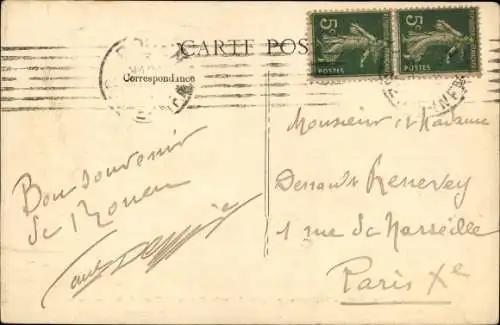 CARTE POS
Correspondance
5c 5c
POSTES POSTES
Bon souvenir
de Rouen
Monsieur et Madame
Renervey
1 rue de Marseille
Paris Xe